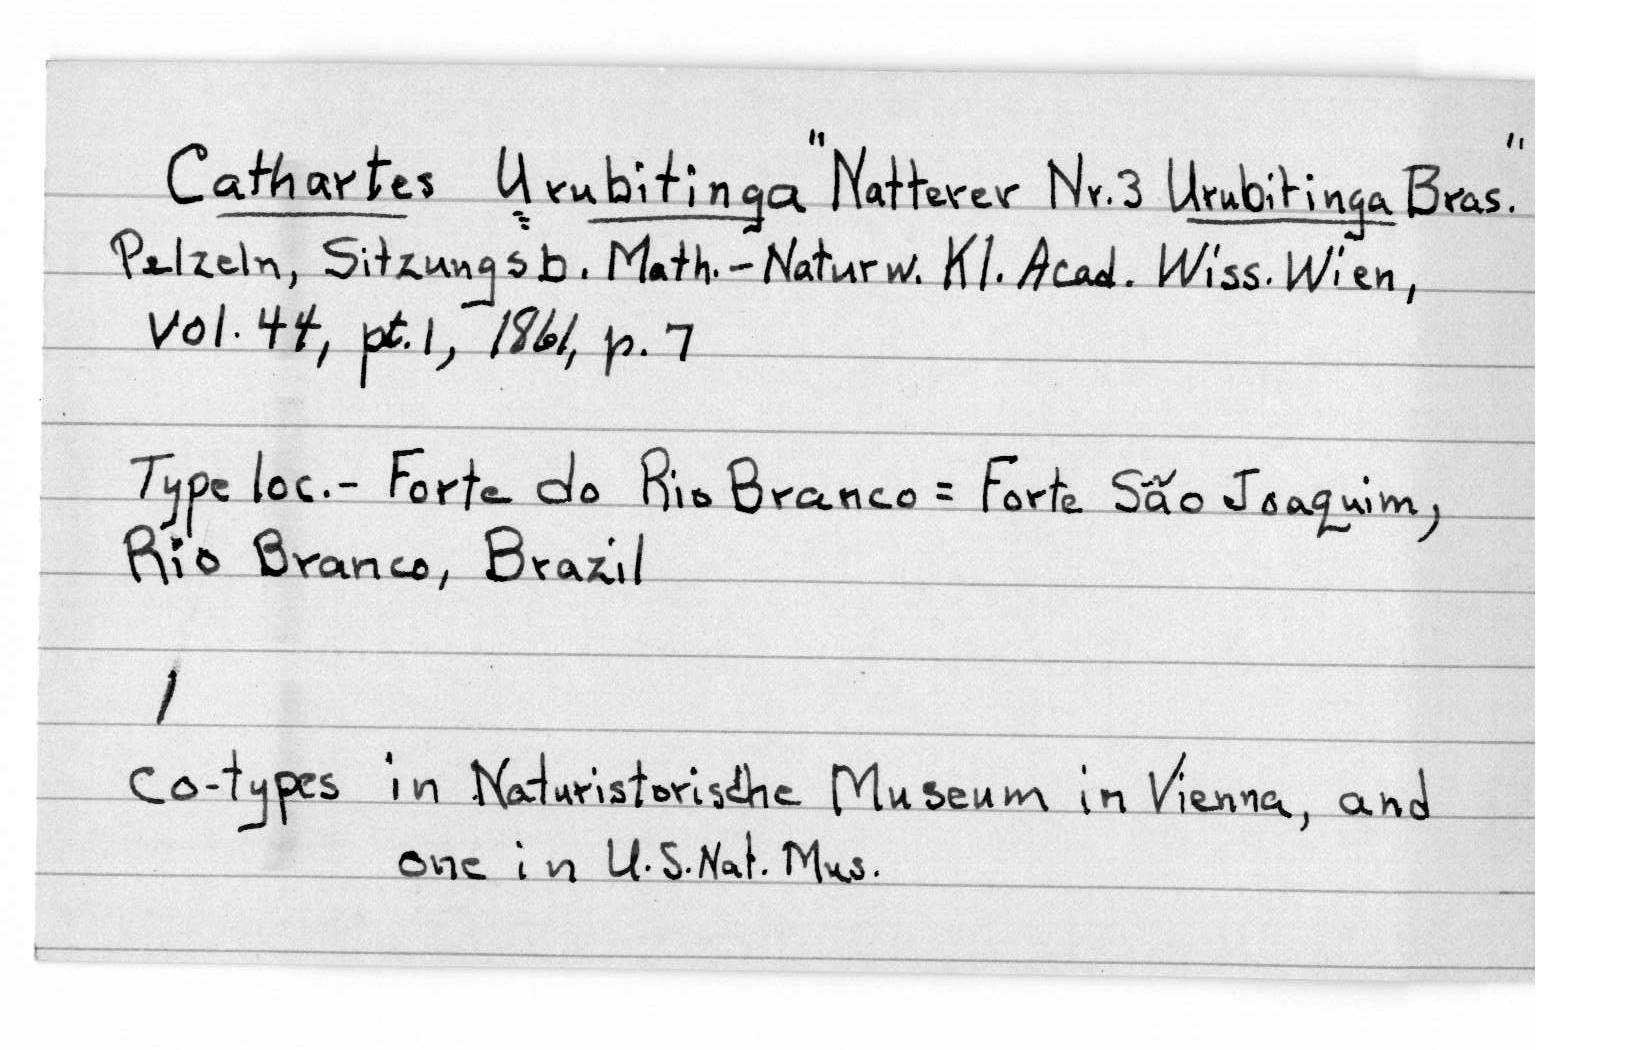 Cathartes Urubitinga "Natterer Nr.3 Urubitinga Bras."
Pelzeln, Sitzungsb. Math.-Naturw. Kl. Acad. Wiss. Wien,
Vol. 44, pt. 1, 1861, p. 7
Type loc.- Forte do Rio Branco = Forte São Joaquim,
Rio Branco, Brazil
/
Co-types in Naturistorische Museum in Vienna, and
one in U.S. Nat. Mus.